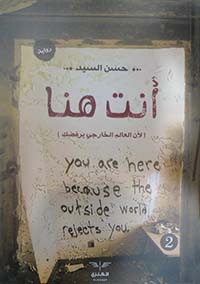 رواية
حسن السيد
أنت هنا
( لأن العالم الخارجي يرفضك )
you are here
because the
outside world
rejects you.
2